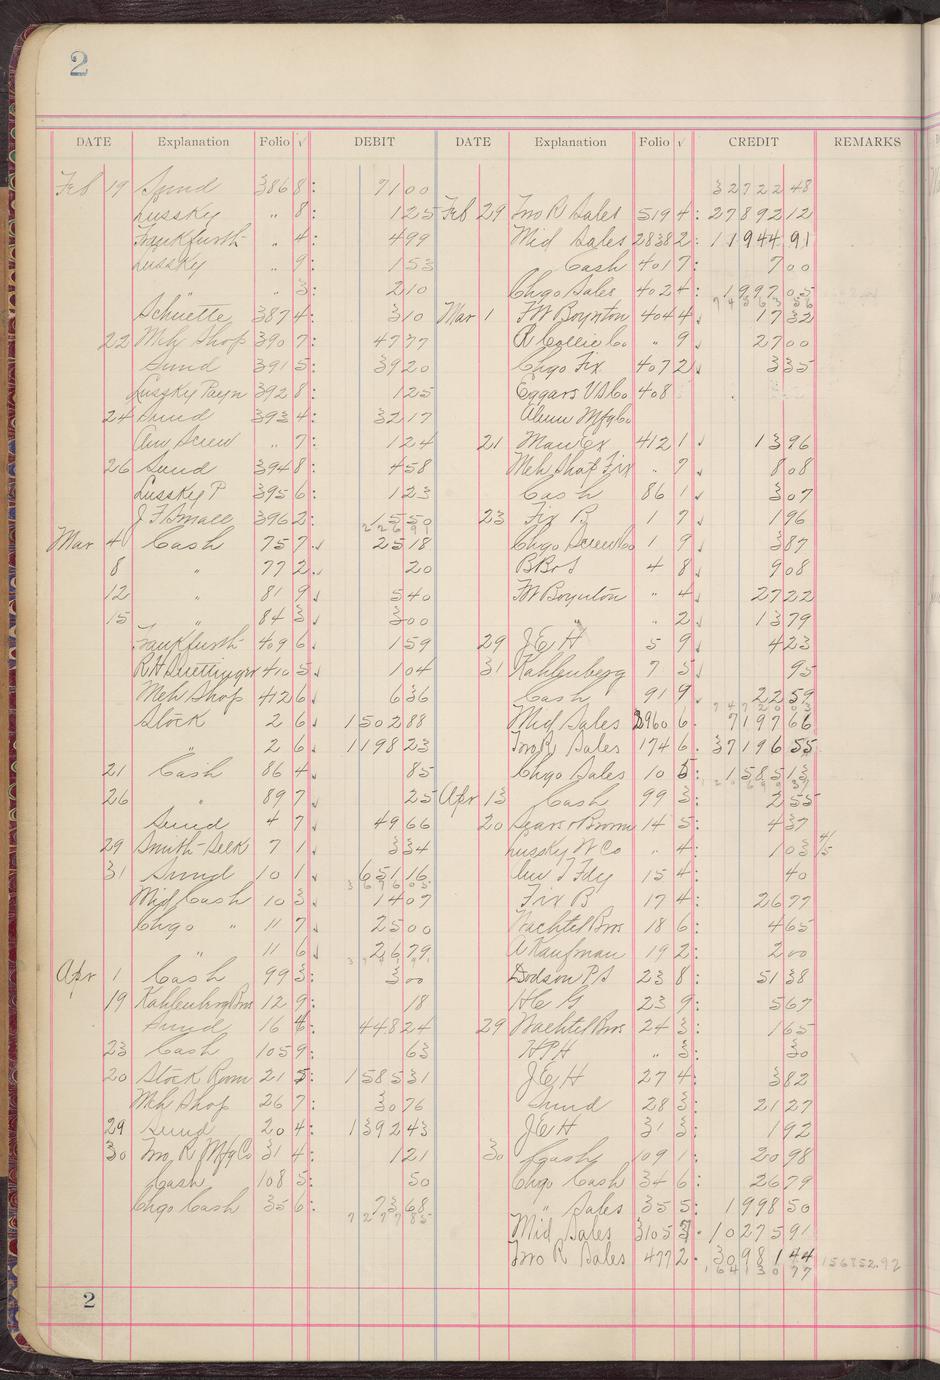 2
DATE Explanation Folio √ DEBIT DATE Explanation Folio √ CREDIT REMARKS
Feb 19 Sund 386 8: 71 00 32722 48
Lussky " 8: 1 25 Feb 29 Two R Sales 519 4: 27892 12
Frankfurth " 4: 4 99 Mid Sales 2838 2: 11944 91
Lussky " 9: 1 53 Cash 401 7: 7 00
" 3: 2 10 Chgo Sales 402 4: 1997 05
Schuette 387 4: 3 10 Mar 1 FW Boynton 404 4 17 32
22 Mch Shop 390 7: 47 77 A Collie Co " 9 27 00
Sund 391 5: 39 20 Chgo Fix 407 2 3 35
Lussky Payn 392 8: 1 25 Eggars V S Co 408
24 Sund 393 4: 32 17 Alum Mfg Co
Am Screw " 7: 1 24 21 Man Ex 412 1 13 96
26 Sund 394 8: 4 58 Mch Shop Fix " 7 8 08
Lussky P 395 6: 1 23 Cash 86 1 3 07
J F Small 396 2: 15 50 23 Fix B 1 7 1 96
Mar 4 Cash 75 7 25 18 Chgo Screw Co 1 9 3 87
8 " 77 2 20 BB&S 4 8 9 08
12 " 81 9 5 40 FW Boynton " 4 27 22
15 " 84 3 3 00 " " 2 13 79
Frankfurth 409 6 1 59 29 J E H 5 9 4 23
R H 410 5 1 04 31 Kahlenberg 7 5 95
Mch Shop 412 6 6 36 Cash 91 9 22 59
Stock 2 6 1502 88 Mid Sales 2960 6 7197 66
" 2 6 1198 23 Two R Sales 174 6 37196 55
21 Cash 86 4 85 Chgo Sales 10 5 1585 13
26 " 89 7 25 Apr 13 Cash 99 3: 2 55
Sund 4 7 49 66 20 Sears & Brown 14 5: 4 37
29 Smith-Seek 7 1 3 34 Lussky W Co " 4: 1 03 4/5
31 Sund 10 1 651 16 15 4: 40
Mid Cash 10 3 14 07 Fix B 17 4: 26 77
Chgo " 11 7 25 00 Wachtel Bros 18 6: 4 65
" 11 6 26 79 A Kaufman 19 2: 2 00
Apr 1 Cash 99 3: 3 00 Dodson P S 23 8: 51 38
19 Kahlenberg Bros 12 9: 18 H C G 23 9: 5 67
Sund 16 4: 448 24 29 Wachtel Bros 24 3: 1 65
23 Cash 105 9: 63 HPH " 3: 30
20 Stock Room 21 5: 1585 31 J E H 27 4: 3 82
Mch Shop 26 7: 30 76 Sund 28 3: 21 27
29 Sund 20 4: 1392 43 J E H 31 3: 1 92
30 Two R Mfg Co 31 4: 1 21 30 Cash 109 1: 20 98
Cash 108 5: 50 Chgo Cash 34 6: 26 79
Chgo Cash 35 6: 73 68 " Sales 35 5: 1998 50
7277 85 Mid Sales 3105 3: 10275 91
Two R Sales 477 2: 30981 44
164130 77 156852.92
2